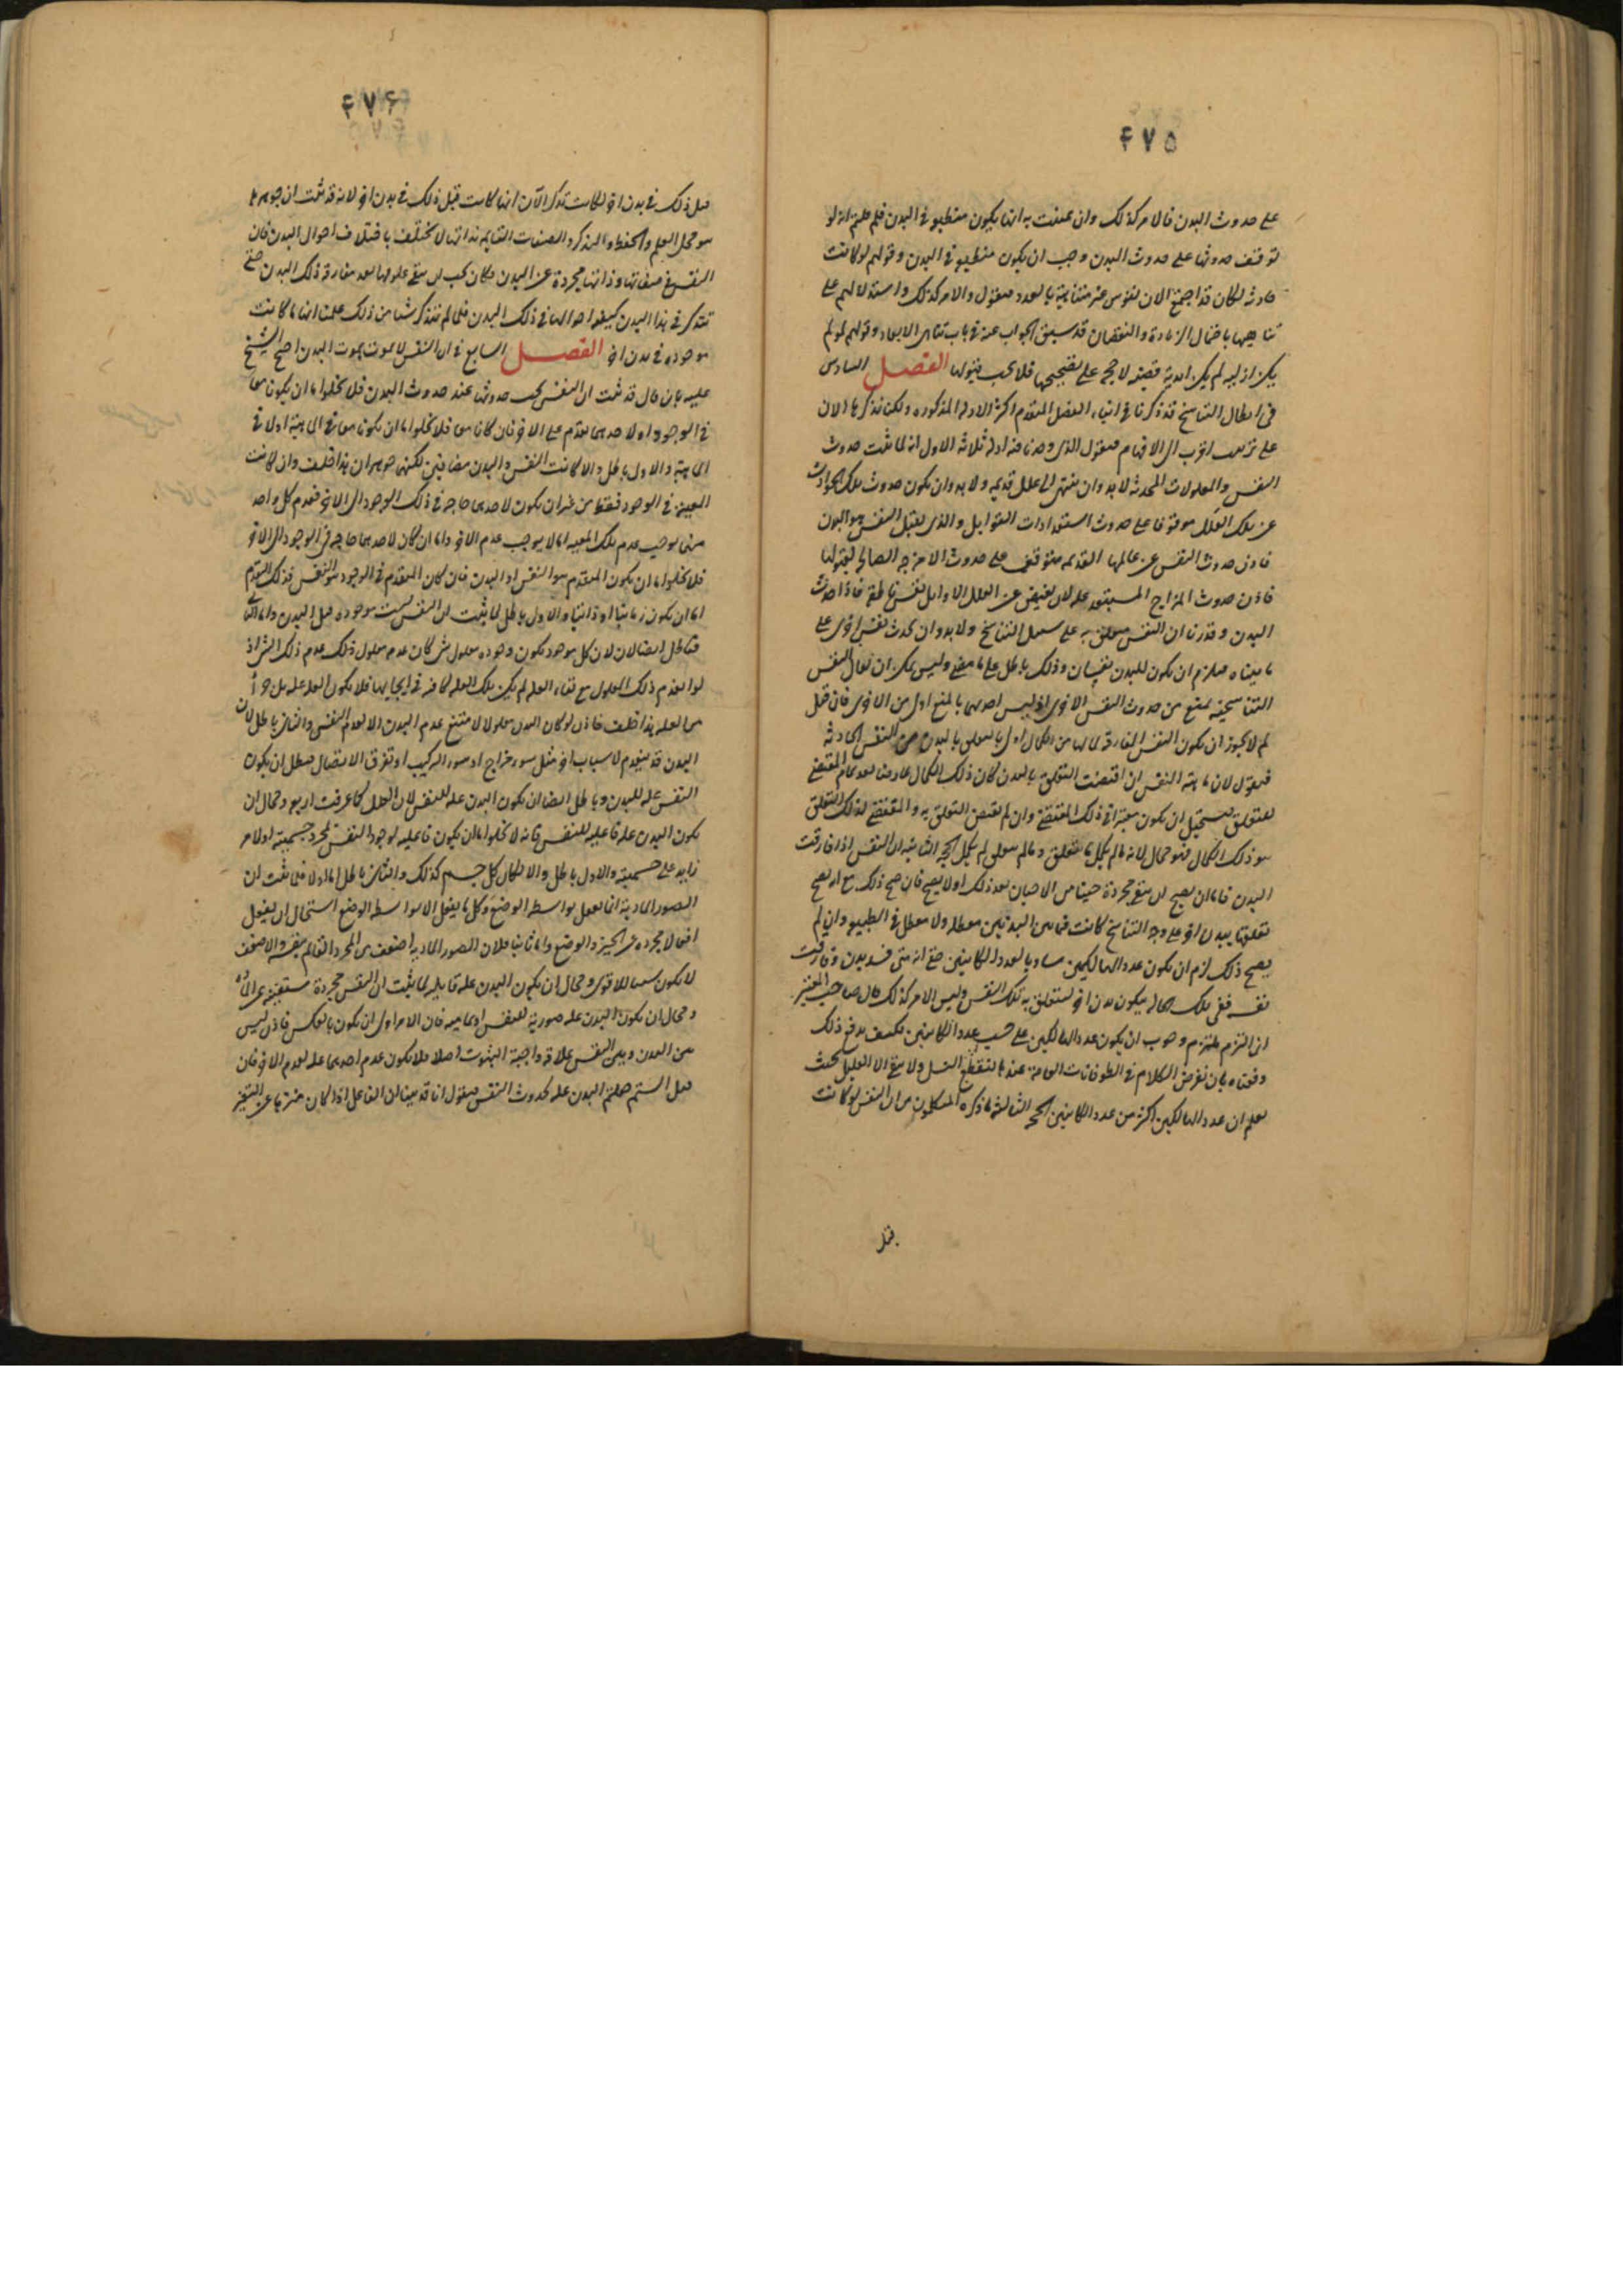 ۴۷۵
على حدوث البدن فالامر كذلك وان عنيت به انها يكون منطبعة في البدن فلم قلتم انه لو
توقف حدوثها على حدوث البدن وجب ان يكون منطبعة في البدن وقولهم لو كانت
حادثة لكان قد اجتمع الان نفوس غير متناهية بالعدد فنقول والامر كذلك واستدلالهم على
تناهيها باحتمال الزيادة والنقصان قد سبق الجواب عنه في باب تناهى الابعاد وقولهم لو لم
يكن ازلية لم يكن ابدية قضية لا حجة على تصحيحها فلا يجب قبولها الفصل السادس
في ابطال التناسخ قد ذكرنا في اثناء الفصل المتقدم اكثر الادلة المذكورة ولكن نذكرها الان
على ترتيب اقرب الى الافهام فنقول الذى وجدناه ادلة ثلاثة الاول انه لما ثبت حدوث
النفس والمعلولات المحدثة لا بد وان تنتهى الى علل قديمة ولا بد وان يكون حدوث تلك الحوادث
عن تلك العلل موقوفا على حدوث استعدادات القوابل والذى يقبل النفس هو البدن
فاذن حدوث النفس عن عللها القديمة متوقف على حدوث الامزجة الصالحة لقبولها
فاذن حدوث المزاج المستعد علة لان يفيض عن العلل الاوايل نفس ناطقة فاذا حدث
البدن وقدرنا ان النفس متعلق به على سبيل التناسخ ولا بد وان يحدث نفس اخرى على
ما بيناه فيلزم ان يكون للبدن نفسان وذلك باطل على ما مضى وليس يمكن ان يقال النفس
التناسخية يمنع من حدوث النفس الاخرى اذ ليس احديهما بالمنع اولى من الاخرى فان قيل
لم لا يجوز ان يكون النفس المفارقة لما لها من الكمال اولى بالتعلق بالبدن من النفس الحادثة
فنقول لان ماهية النفس ان اقتضت التعلق بالبدن كان ذلك الكمال عارضا بعد تمام المقتضى
للتعلق يستحيل ان يكون معتبرا في ذلك المقتضى وان لم يقتض التعلق به والمقتضى لذلك التعلق
هو ذلك الكمال فهو محال لانه ما لم يكمل ما تتعلق وما لم يتعلق لم يكمل الحجة الثانية ان النفس اذا فارقت
البدن فاما ان يصح ان يبقى مجردة حينا من الاحيان بعد ذلك او لا يصح فان صح ذلك مع انه يصح
تعلقها ببدن اخر على وجه التناسخ كانت فيما بين البدنين معطلة ولا معطل في الطبيعة وان لم
يصح ذلك لزم ان يكون عدد الهالكين مساويا لعدد الكاينين حتى انه متى فسد بدن وفارقت
نفسه ففى تلك الحالة يتكون بدن اخر لتتعلق به تلك النفس وليس الامر كذلك قال صاحب المعتبر
ان التزم ملتزم وجوب ان يكون عدد الهالكين على حسب عدد الكاينين يكيف يدفع ذلك
دفعناه بان نفرض الكلام في الطوفانات العامة عند ما ينقطع النسل ولا يبقى الا القليل بحيث
يعلم ان عدد الهالكين اكثر من عدد الكاينين الحجة الثالثة ما ذكره المتكلمون من ان النفس لو كانت
قبل
۴۷۶
قبل ذلك في بدن اخر لكانت تذكر الآن انها كانت قبل ذلك في بدن اخر لانه قد ثبت ان جوهرها
هو محل العلم والحفظ والتذكر والصفات القايمة بذاتها لا تختلف باختلاف احوال البدن فان
النفس في صفاتها وذاتها مجردة عن البدن فكان يجب ان يبقى علومها بعد مفارقة ذلك البدن حتى
تتذكر في هذا البدن كيفية احوالها في ذلك البدن فلما لم نتذكر شيئا من ذلك علمنا انها ما كانت
موجودة في بدن اخر الفصل السابع في ان النفس لا يموت بموت البدن احتج الشيخ
عليه بان قال قد ثبت ان النفس يجب حدوثها عند حدوث البدن فلا يخلو اما ان يكون معا
في الوجود او لاحدهما تقدم على الاخر فان كانا معا فلا يخلو اما ان يكون معا في الماهية او لا في
الماهية والاول باطل والا كانت النفس والبدن متضايفين لكنهما جوهران هذا خلف وان كانت
المعية في الوجود فقط من غير ان يكون لاحدهما حاجة في ذلك الوجود الى الاخر فعدم كل واحد
منهما يوجب عدم تلك المعية اما لا يوجب عدم الاخر واما ان كان لاحدهما حاجة في الوجود الى الاخر
فلا يخلو اما ان يكون المتقدم هو النفس او البدن فان كان المتقدم في الوجود هو النفس فذلك التقدم
اما ان يكون زمانيا او ذاتيا والاول باطل لما ثبت ان النفس ليست موجودة قبل البدن واما الثانى
فباطل ايضا لان لان كل موجود يكون وجوده معلول شئ كان عدمه معلول عدم ذلك الشئ اذ
لو انعدم ذلك المعلول مع بقاء العلة لم يكن تلك العلة كافية في ايجابها فلا يكون العلة علة بل جزءا
من العلة هذا خلف فاذن لو كان البدن معلولا لامتنع عدم البدن الا لعدم النفس والثانى باطل لان
البدن قد ينعدم لاسباب اخر مثل سوء مزاج او سوء التركيب او تفرق الاتصال فبطل ان يكون
النفس علة للبدن وباطل ايضا ان يكون البدن علة للنفس لان العلل كما عرفت اربع ومحال ان
يكون البدن علة فاعلية للنفس فانه لا يخلو اما ان يكون فاعلية لوجود النفس لمجرد جسميته او لامر
زايد على جسميته والاول باطل والا لكان كل جسم كذلك والثانى باطل اما اولا فلما ثبت ان
الصور المادية انما تفعل بواسطة الوضع وكل ما يفعل الا بواسطة الوضع استحال ان يفعل
افعالا مجردة عن الحيز والوضع واما ثانيا فلان الصور المادية اضعف من المجرد القائم بنفسه والاضعف
لا يكون سببا للاقوى ومحال ان يكون البدن علة قابلية لما ثبت ان النفس مجردة مستغنية عن المادة
ومحال ان يكون البدن علة صورية للنفس او تمامية فان الامر اولى ان يكون بالعكس فاذن ليس
بين البدن وبين النفس علاقة واجبة الثبوت اصلا فلا يكون عدم احدهما علة لعدم الاخر فان
قيل الستم جعلتم البدن علة لحدوث النفس فنقول انا قد بينا ان الفاعل اذا كان منزها عن التغير